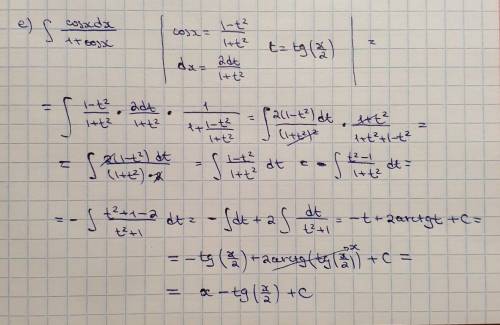 e) ∫ cosxdx/(1+cosx) | cosx = (1-t²)/(1+t²) t = tg(x/2) | =
dx = 2dt/(1+t²)
= ∫ (1-t²)/(1+t²) · 2dt/(1+t²) · 1/(1+(1-t²)/(1+t²)) = ∫ 2(1-t²)dt/(1+t²)² · (1+t²)/(1+t²+1-t²) =
= ∫ 2(1-t²)dt/((1+t²)·2) = ∫ (1-t²)/(1+t²) dt = -∫ (t²-1)/(1+t²) dt =
= -∫ (t²+1-2)/(t²+1) dt = -∫dt + 2∫ dt/(t²+1) = -t + 2arctgt + C =
= -tg(x/2) + 2arctg(tg(x/2)) x + C =
= x - tg(x/2) + C